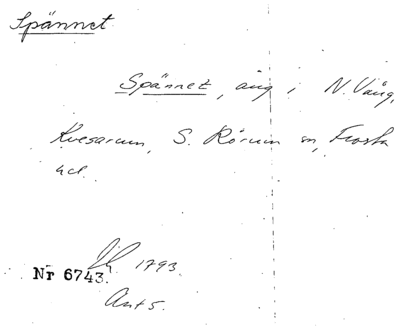 Spännet
Spännet, äng i N. Vång,
Kvesarum, S. Rörum sn, Frosta
hd.
1793.
Nr 6743.
Ant 5.